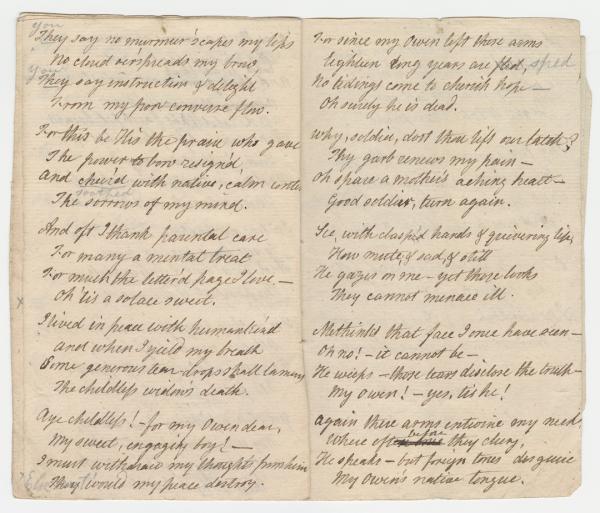 you
They say no murmur 'scapes my lips
No cloud o'erspreads my brow,
you
They say instruction & delight
From my poor converse flow.
For this be His the praise who gave
The power to bow resign'd
And cheer'd with native, calm
soothed
The sorrows of my mind.
And oft I thank parental care
For many a mental treat
For much the letter'd page I love, —
Oh 'tis a solace sweet.
x
I lived in peace with human kind
And when I yield my breath
Some generous tear drops shall lament
The childless widow's death.
Aye childless! — for my Owen dear,
My sweet, engaging boy! —
I must withdraw my thoughts from him
They would my peace destroy.
For since my Owen left these arms
Eighteen long years are fled, sped
No tidings come to cherish hope —
Oh surely he is dead.
Why, soldier, dost thou lift our latch?
Thy garb renews my pain —
Oh spare a mother's aching heart —
Good soldier, turn again.
See, with clasp'd hands & quivering lips,
How mute, & sad, & still
He gazes on me — yet those looks
They cannot menace ill.
Methinks that face I once have seen —
Oh no! — it cannot be —
He weeps — those tears disclose the truth —
My Owen! — yes, tis he!
Again there arms entwine my neck
before
Where oft they clung,
He speaks — but foreign tones disguise
My Owen's native tongue.